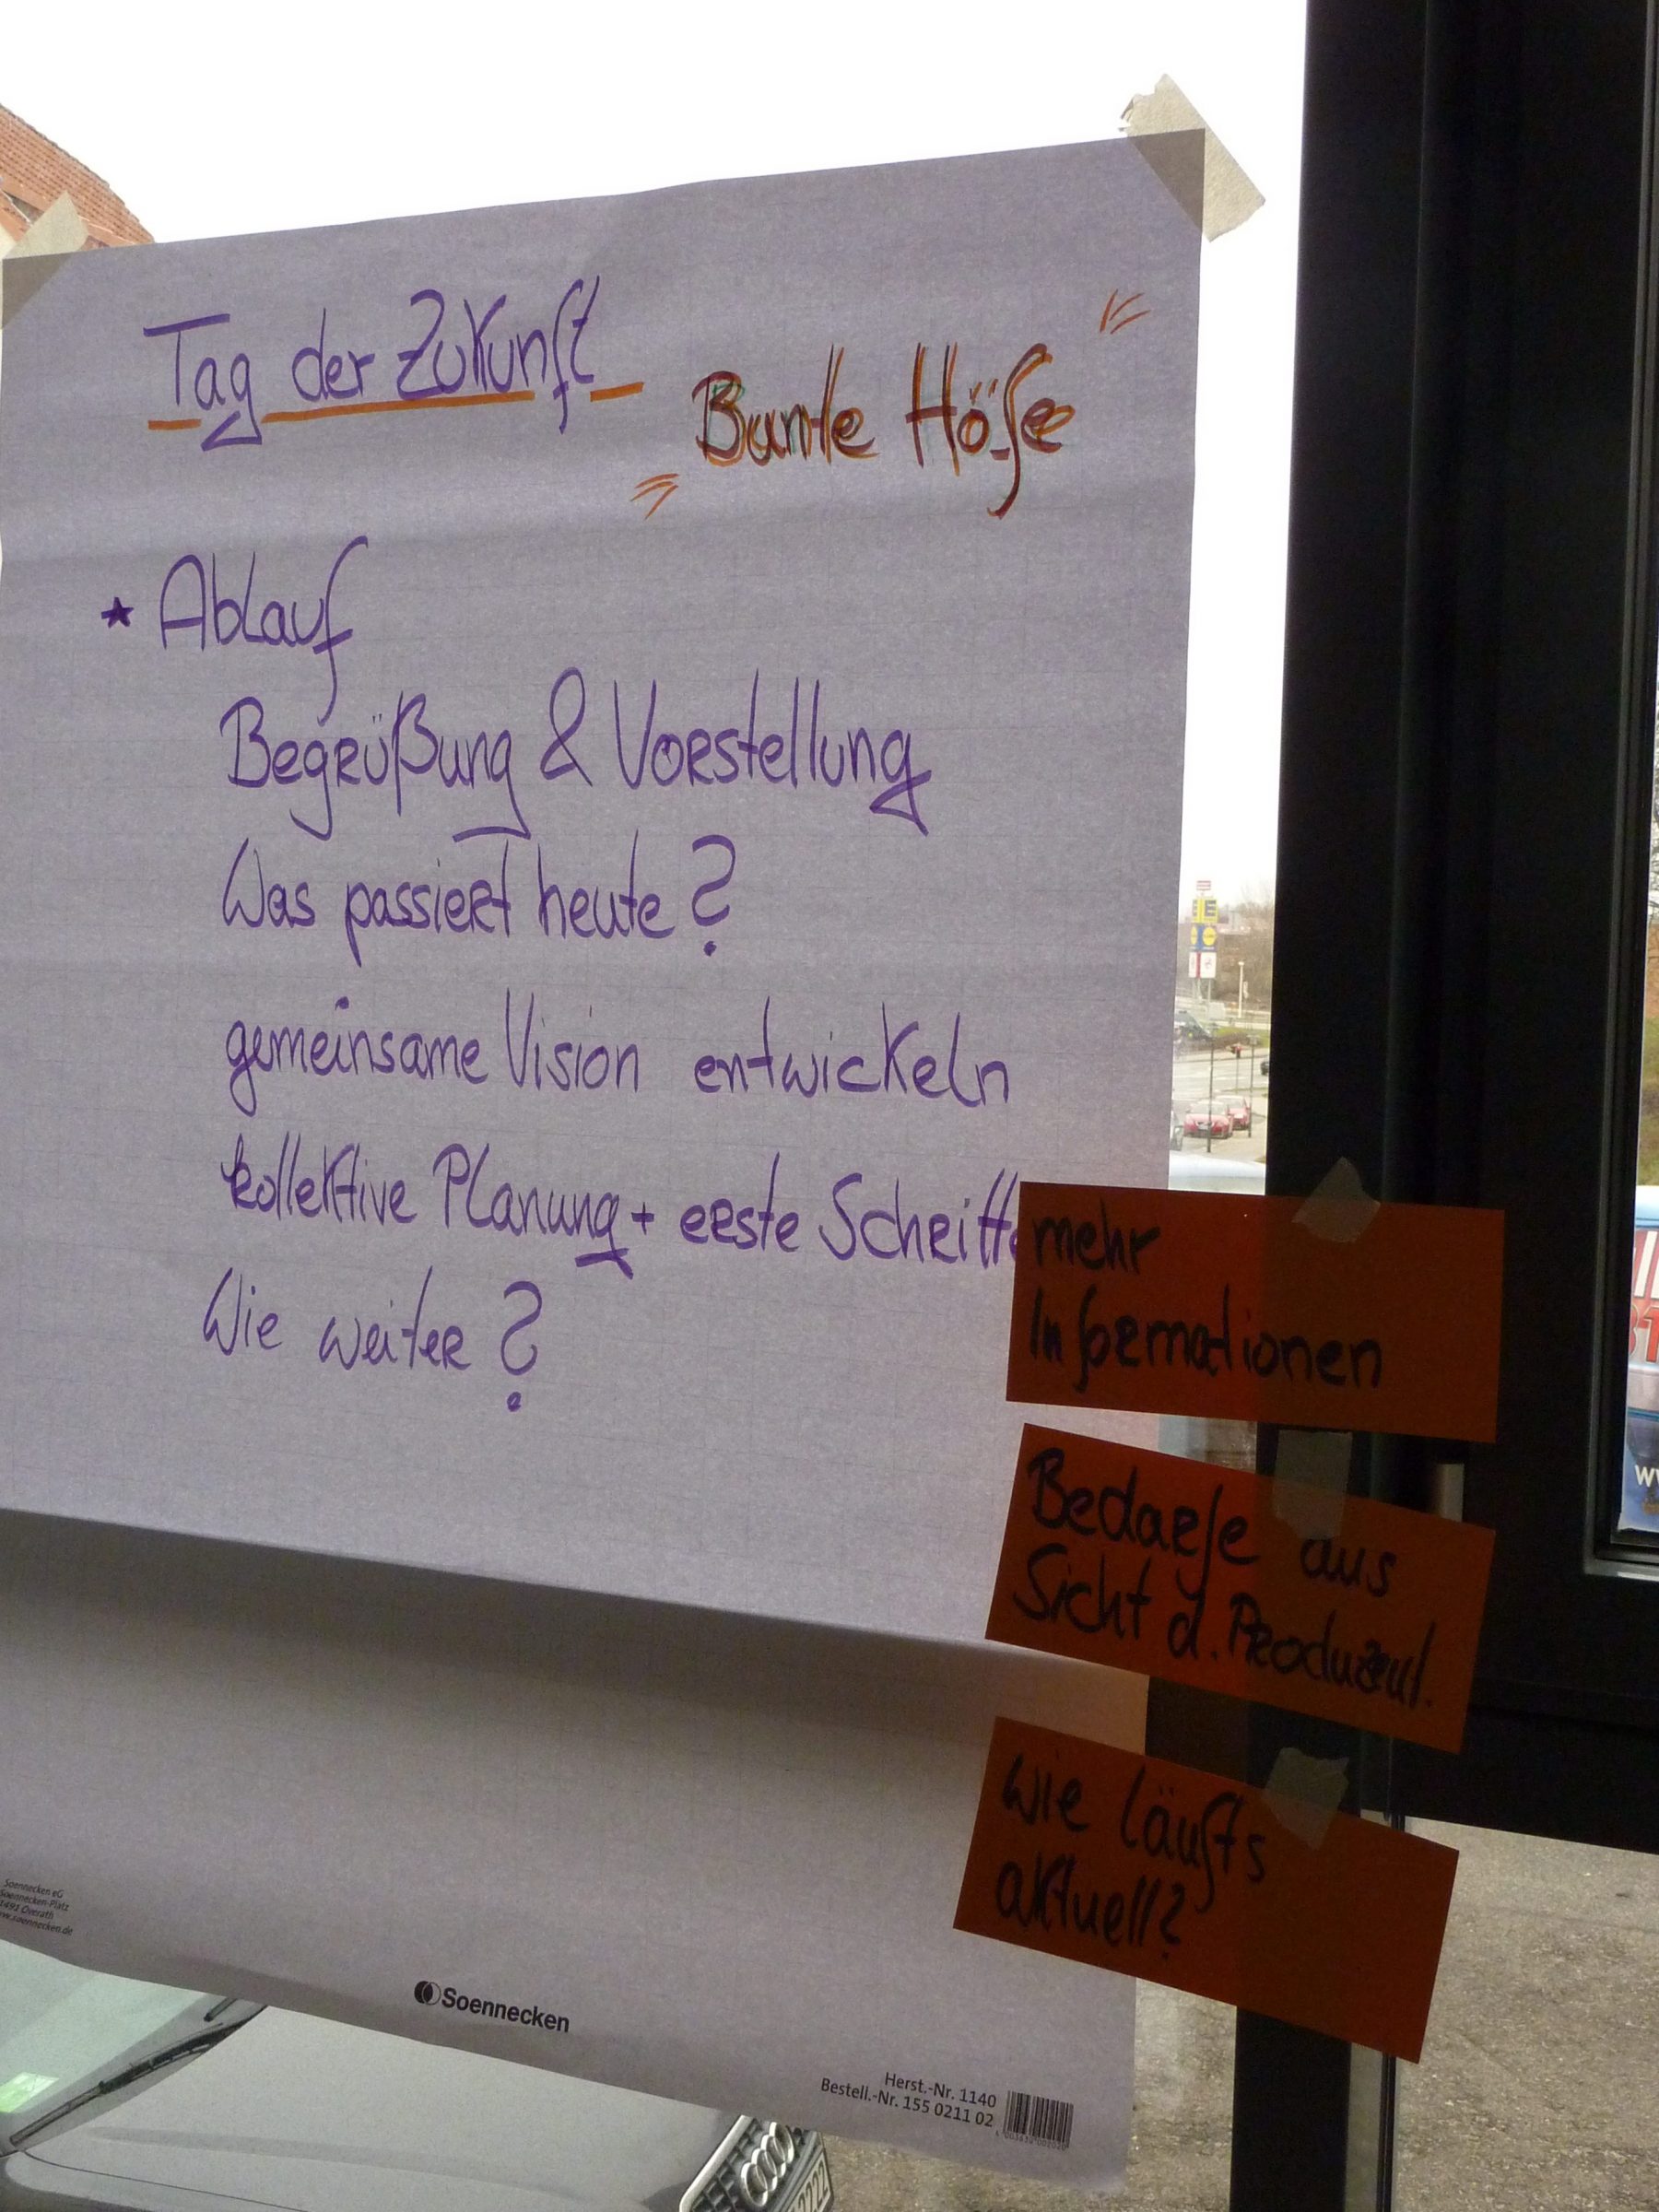 Tag der Zukunft
Bunte Höfe
* Ablauf
Begrüßung & Vorstellung
Was passiert heute?
gemeinsame Vision entwickeln
kollektive Planung + erste Schritte
Wie weiter?
mehr
Informationen
Bedarfe aus
Sicht d. Produzent.
Wie läufts
aktuell?
Soennecken eG
Soennecken-Platz
Overath
Soennecken
Herst.-Nr. 1140
Bestell.-Nr. 155 0211 02